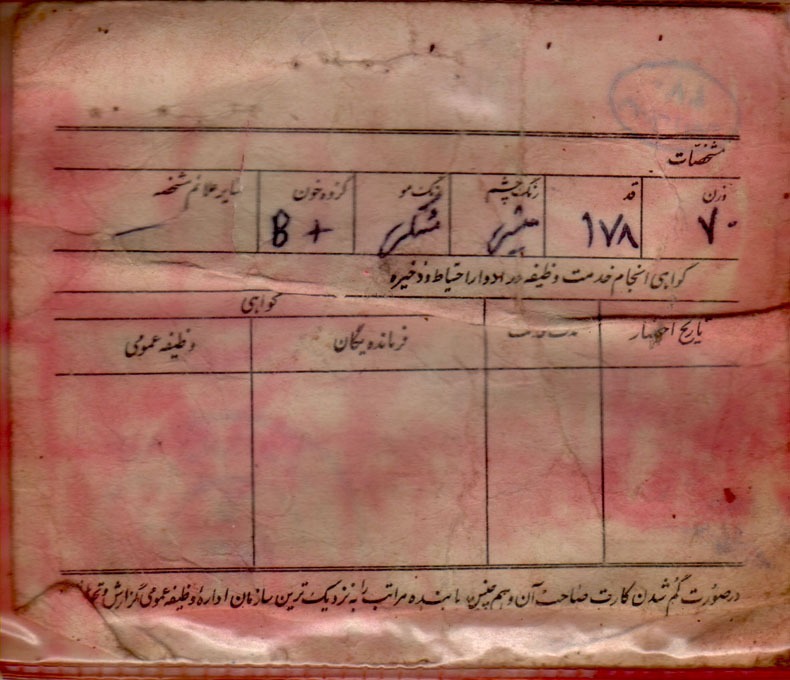 مشخصات
وزن قد رنگ چشم رنگ مو گروه خون سایر علائم مشخصه
۷۰ ۱۷۸ میشی مشکی B +
گواهی انجام خدمت وظیفه در ادوار احتیاط و ذخیره
گواهی
تاریخ احضار مدت خدمت فرمانده یگان وظیفه عمومی
در صورت گم شدن کارت صاحب آن و هم چنین یابنده مراتب را به نزدیک ترین سازمان ادارهٔ وظیفه عمومی گزارش و